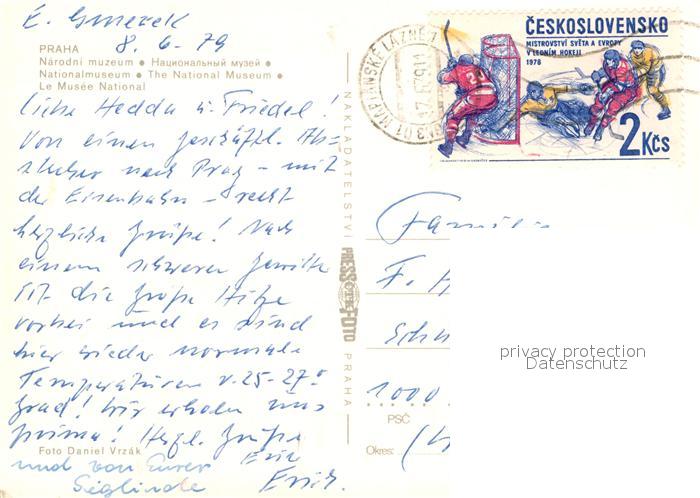 E. Gmerek
8. 6. 79
PRAHA
Národní muzeum ● Национальный музей ●
Nationalmuseum ● The National Museum ●
Le Musée National
Liebe Hedda u. Friedel!
Von einem geschäftl. Ab-
stecher nach Prag – mit
der Eisenbahn – recht
herzliche Grüße! Nach
einem schweren Gewitter
ist die große Hitze
vorbei und es sind
hier wieder normale
Temperaturen v. 25-27°
Grad! Wir erholen uns
prima! Herzl. Grüße
Foto Daniel Vrzák
und von Eurer
Sieglinde
Erich.
NAKLADATELSTVÍ PRESSFOTO PRAHA
MARIÁNSKÉ LÁZNĚ
ČESKOSLOVENSKO
MISTROVSTVÍ SVĚTA A EVROPY
V LEDNÍM HOKEJI
1978
2 Kčs
Familie
F. H
Sch
1000
PSČ
Okres:
privacy protection
Datenschutz